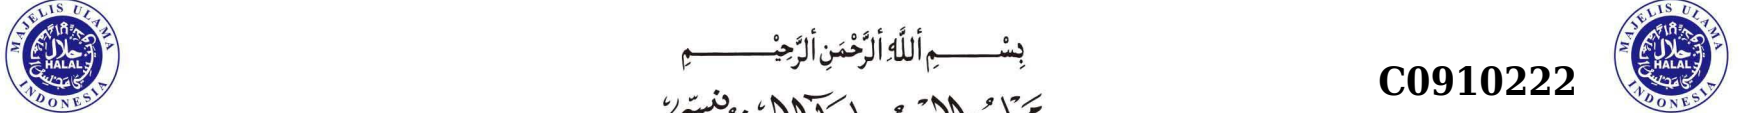 MAJELIS ULAMA INDONESIA
حلال
HALAL
بِسْــــمِ ٱللَّهِ ٱلرَّحْمَنِ ٱلرَّحِيْــــمِ
C0910222
MAJELIS ULAMA INDONESIA
حلال
HALAL